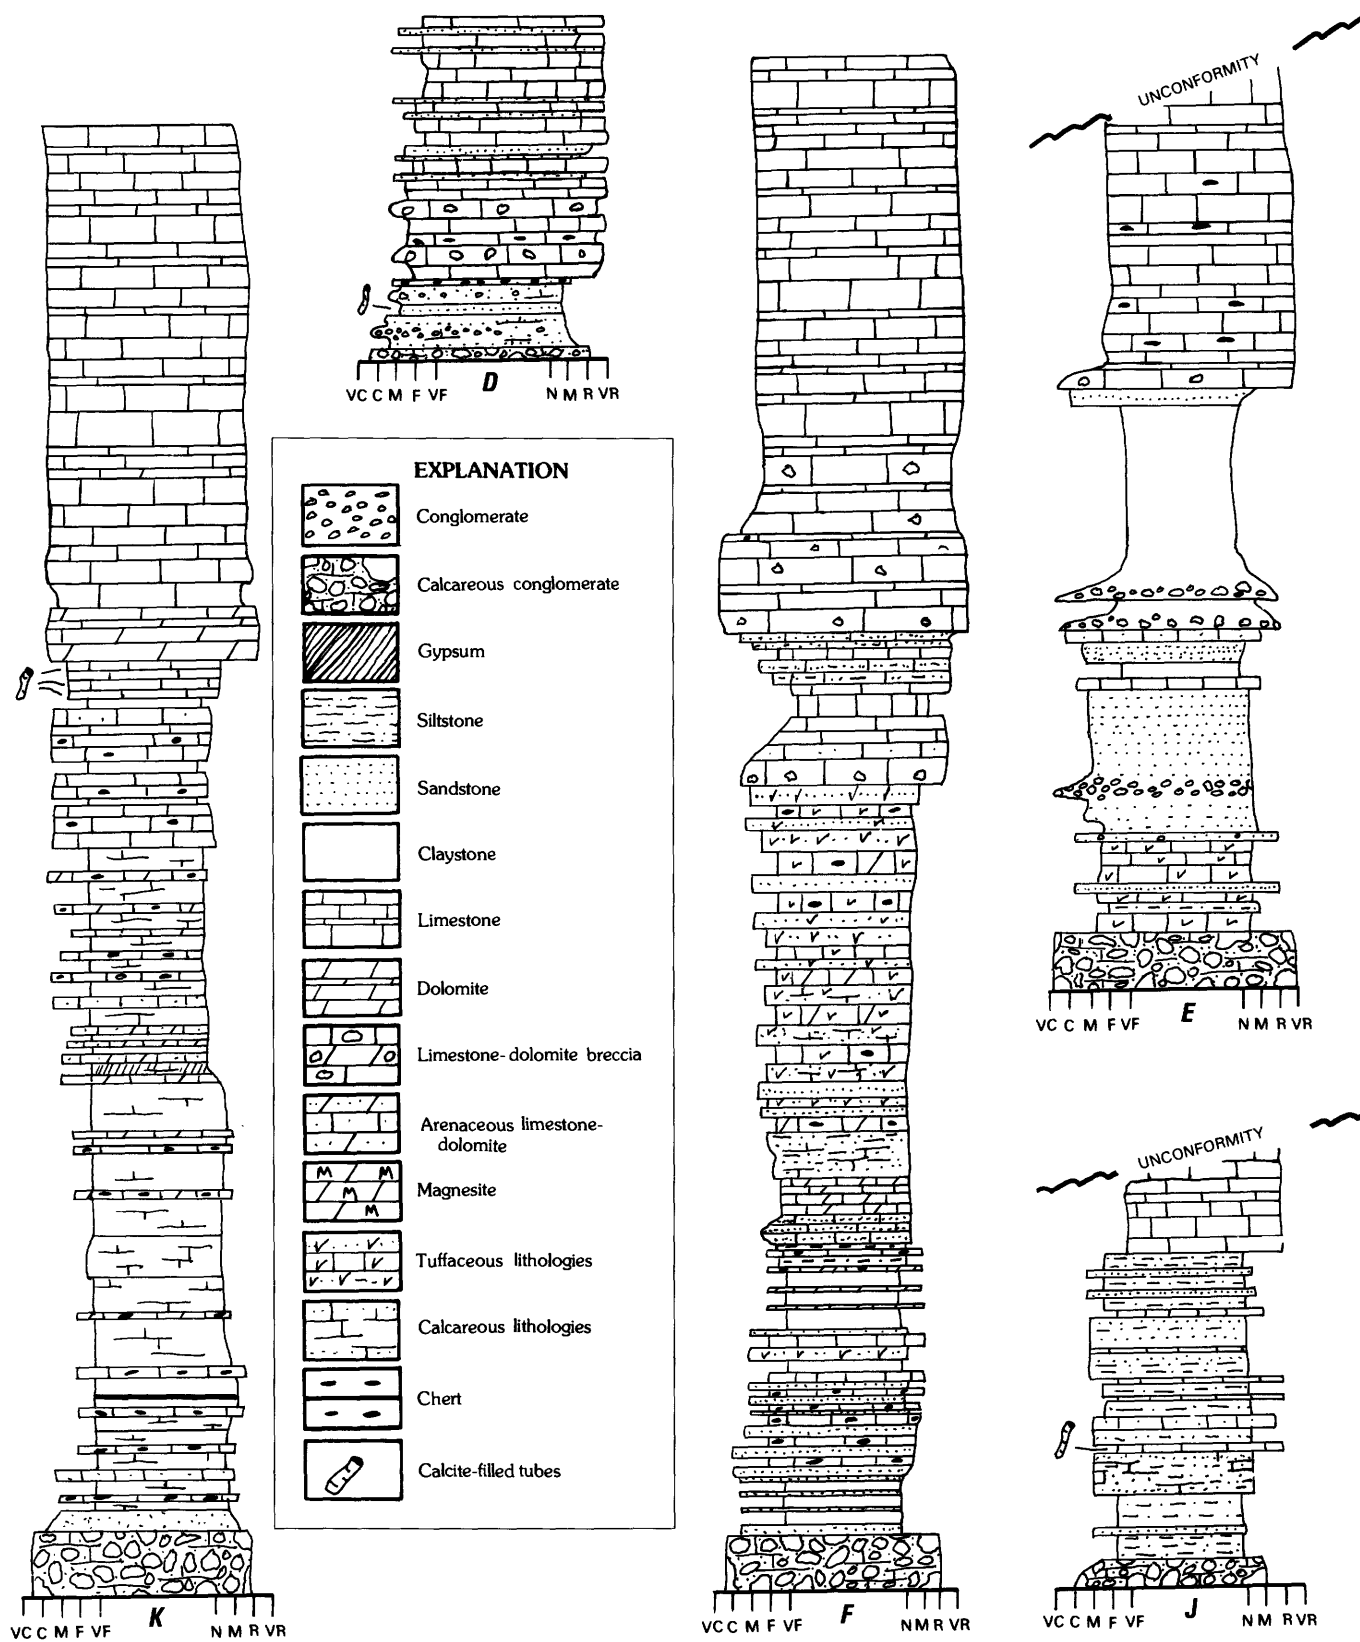 UNCONFORMITY
VC C M F VF N M R VR
D
EXPLANATION
Conglomerate
Calcareous conglomerate
Gypsum
Siltstone
Sandstone
Claystone
Limestone
Dolomite
Limestone-dolomite breccia
Arenaceous limestone-
dolomite
M M
M
M
Magnesite
Tuffaceous lithologies
Calcareous lithologies
Chert
Calcite-filled tubes
VC C M F VF N M R VR
E
UNCONFORMITY
VC C M F VF N M R VR
K
VC C M F VF N M R VR
F
VC C M F VF N M R VR
J